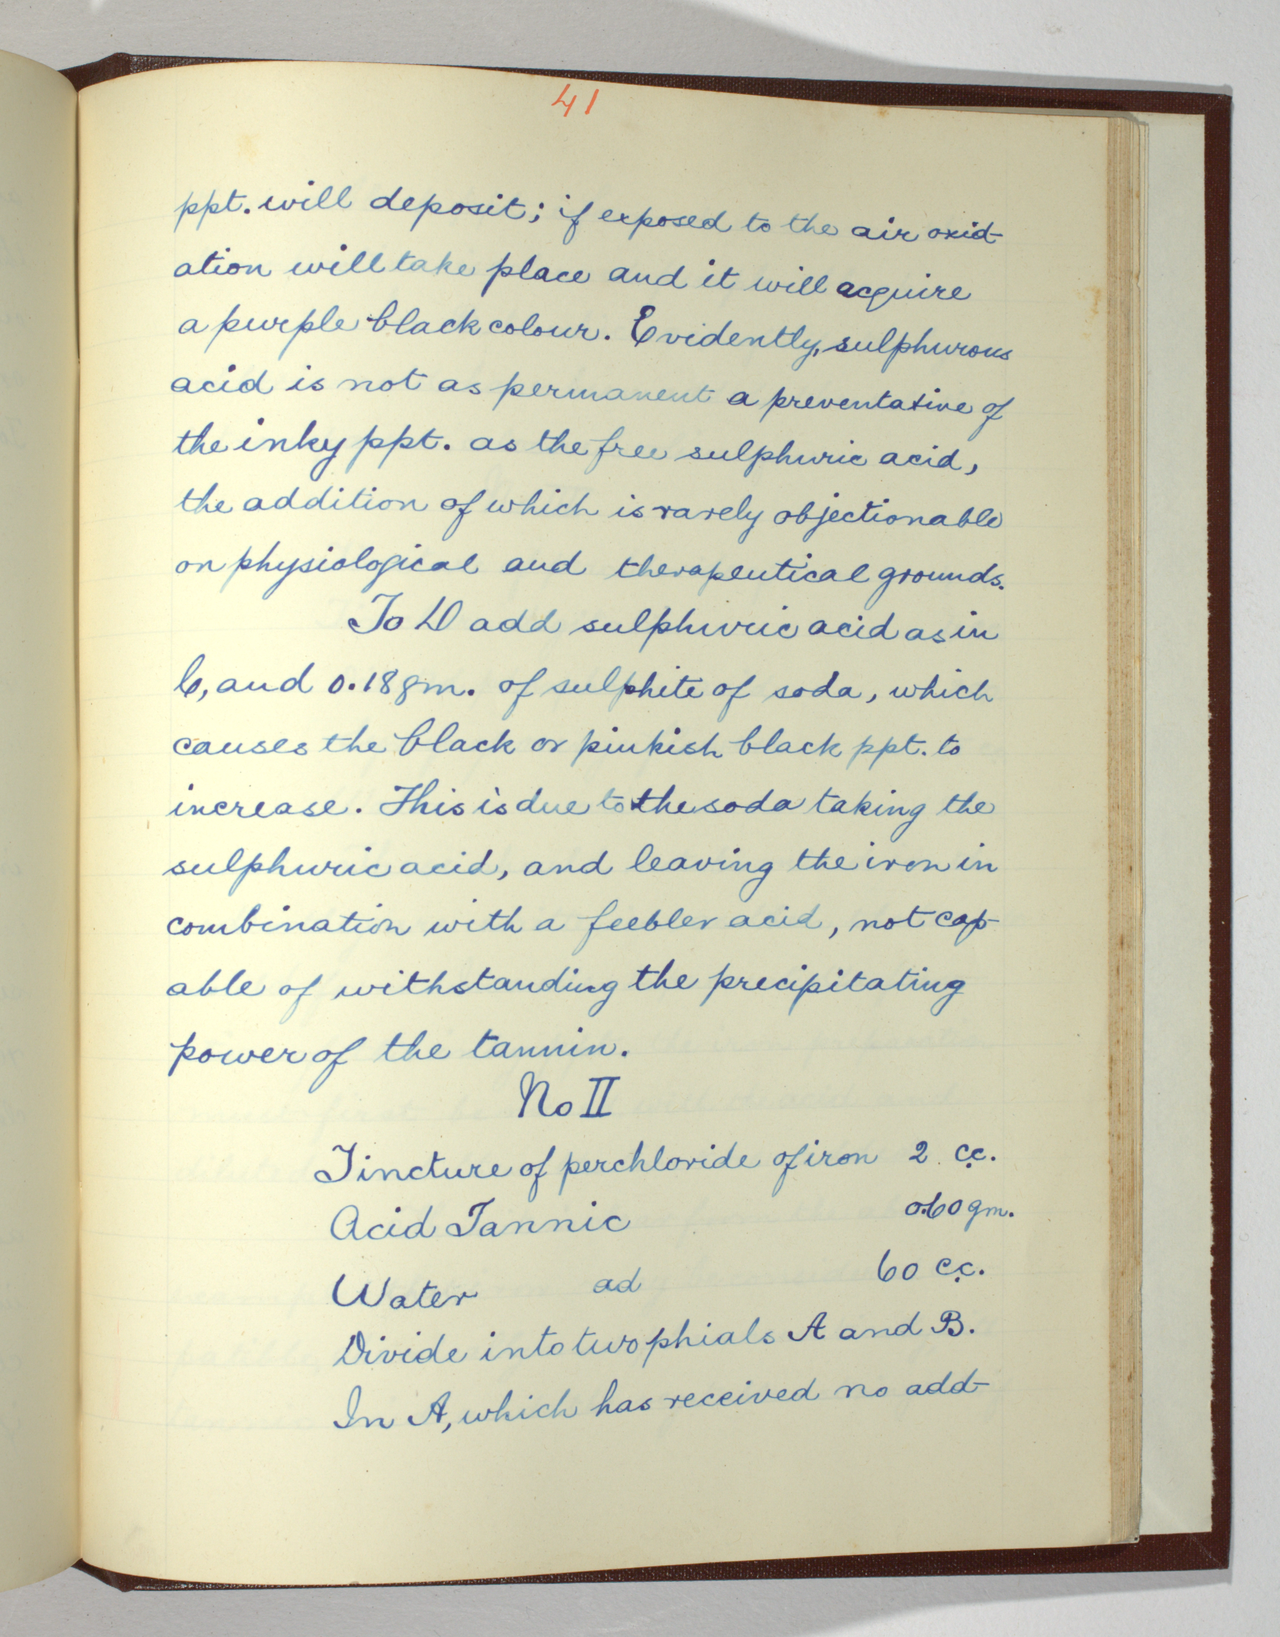 41
ppt. will deposit; if exposed to the air oxid-
ation will take place and it will acquire
a purple black colour. Evidently, sulphurous
acid is not as permanent a preventative of
the inky ppt. as the free sulphuric acid,
the addition of which is rarely objectionable
on physiological and therapeutical grounds.
To D add sulphuric acid as in
C, and 0.18 gm. of sulphite of soda, which
causes the black or pinkish black ppt. to
increase. This is due to the soda taking the
sulphuric acid, and leaving the iron in
combination with a feebler acid, not cap-
able of withstanding the precipitating
power of the tannin.
No II
Tincture of perchloride of iron 2 c.c.
Acid Tannic 0.60 gm.
Water ad 60 c.c.
Divide into two phials A and B.
In A, which has received no add-